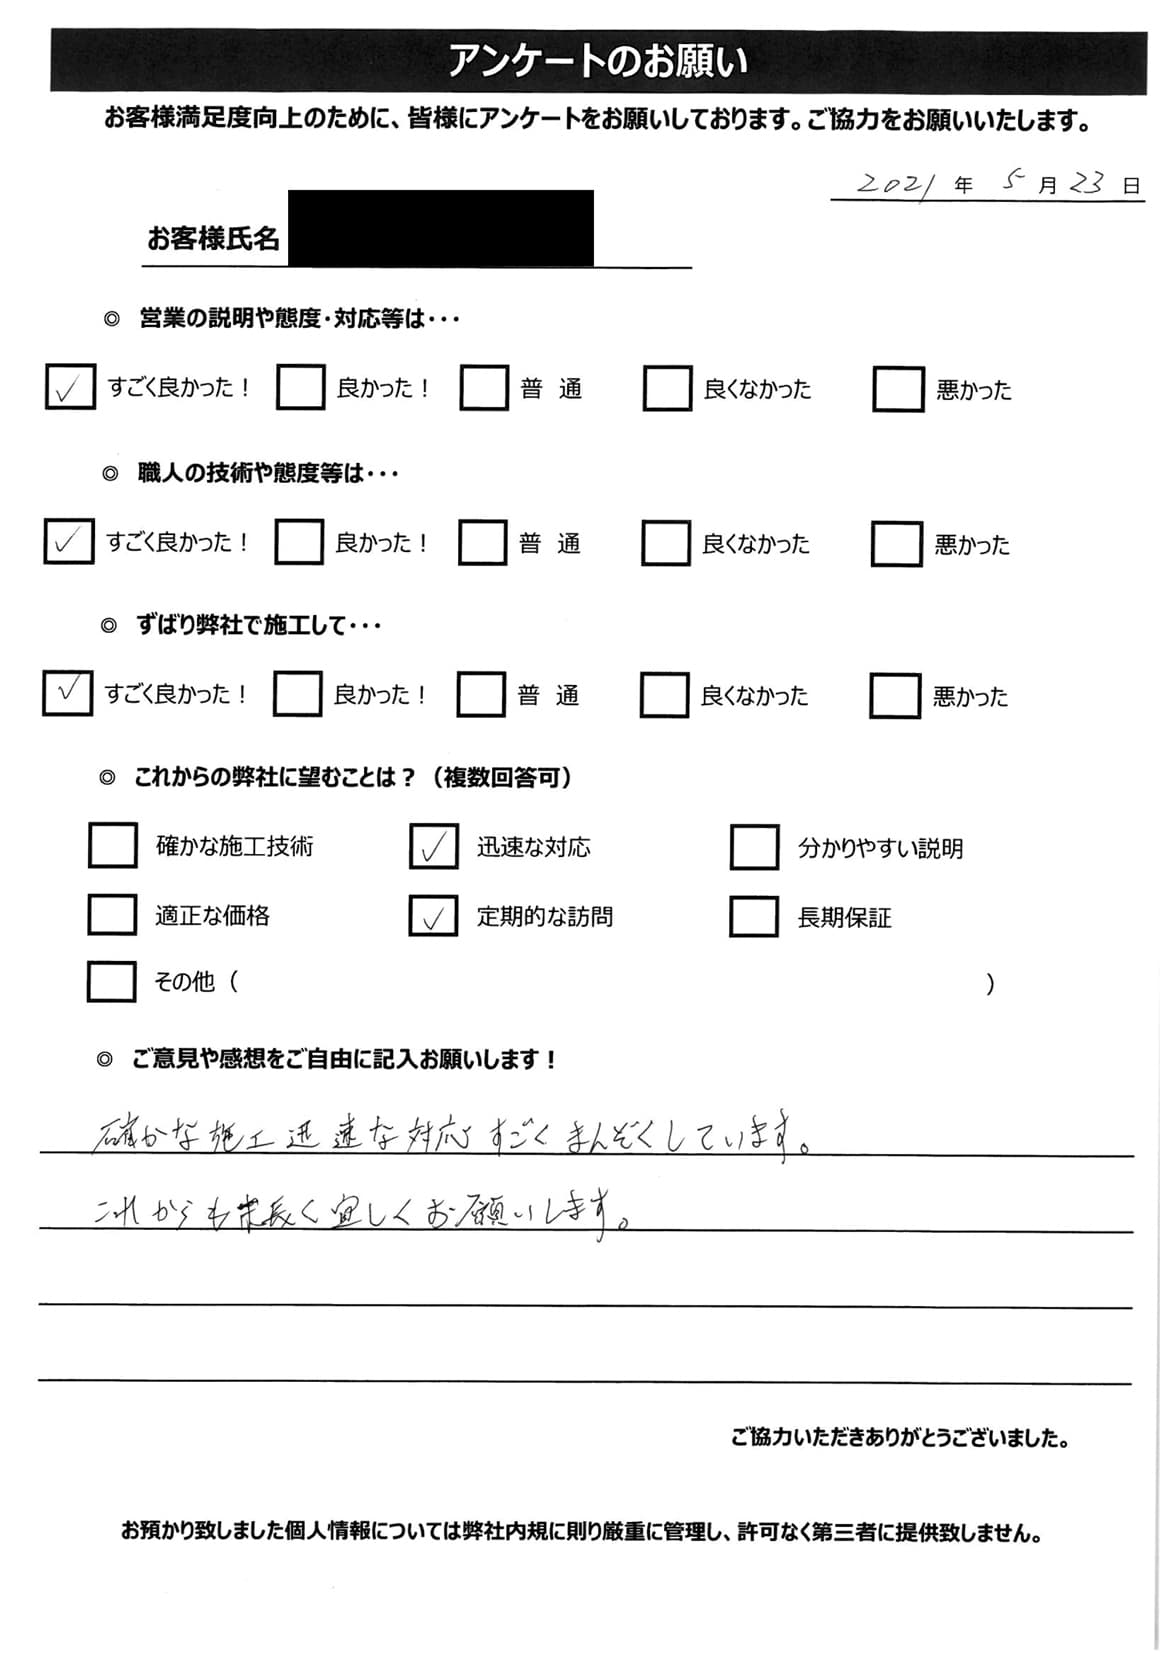 アンケートのお願い
お客様満足度向上のために、皆様にアンケートをお願いしております。ご協力をお願いいたします。
2021 年 5 月 23 日
お客様氏名
◎ 営業の説明や態度・対応等は・・・
✓ すごく良かった！ 良かった！ 普 通 良くなかった 悪かった
◎ 職人の技術や態度等は・・・
✓ すごく良かった！ 良かった！ 普 通 良くなかった 悪かった
◎ ずばり弊社で施工して・・・
✓ すごく良かった！ 良かった！ 普 通 良くなかった 悪かった
◎ これからの弊社に望むことは？（複数回答可）
確かな施工技術 ✓ 迅速な対応 分かりやすい説明
適正な価格 ✓ 定期的な訪問 長期保証
その他（ ）
◎ ご意見や感想をご自由に記入お願いします！
確かな施工迅速な対応すごくまんぞくしています。
これからも末長く宜しくお願いします。
ご協力いただきありがとうございました。
お預かり致しました個人情報については弊社内規に則り厳重に管理し、許可なく第三者に提供致しません。